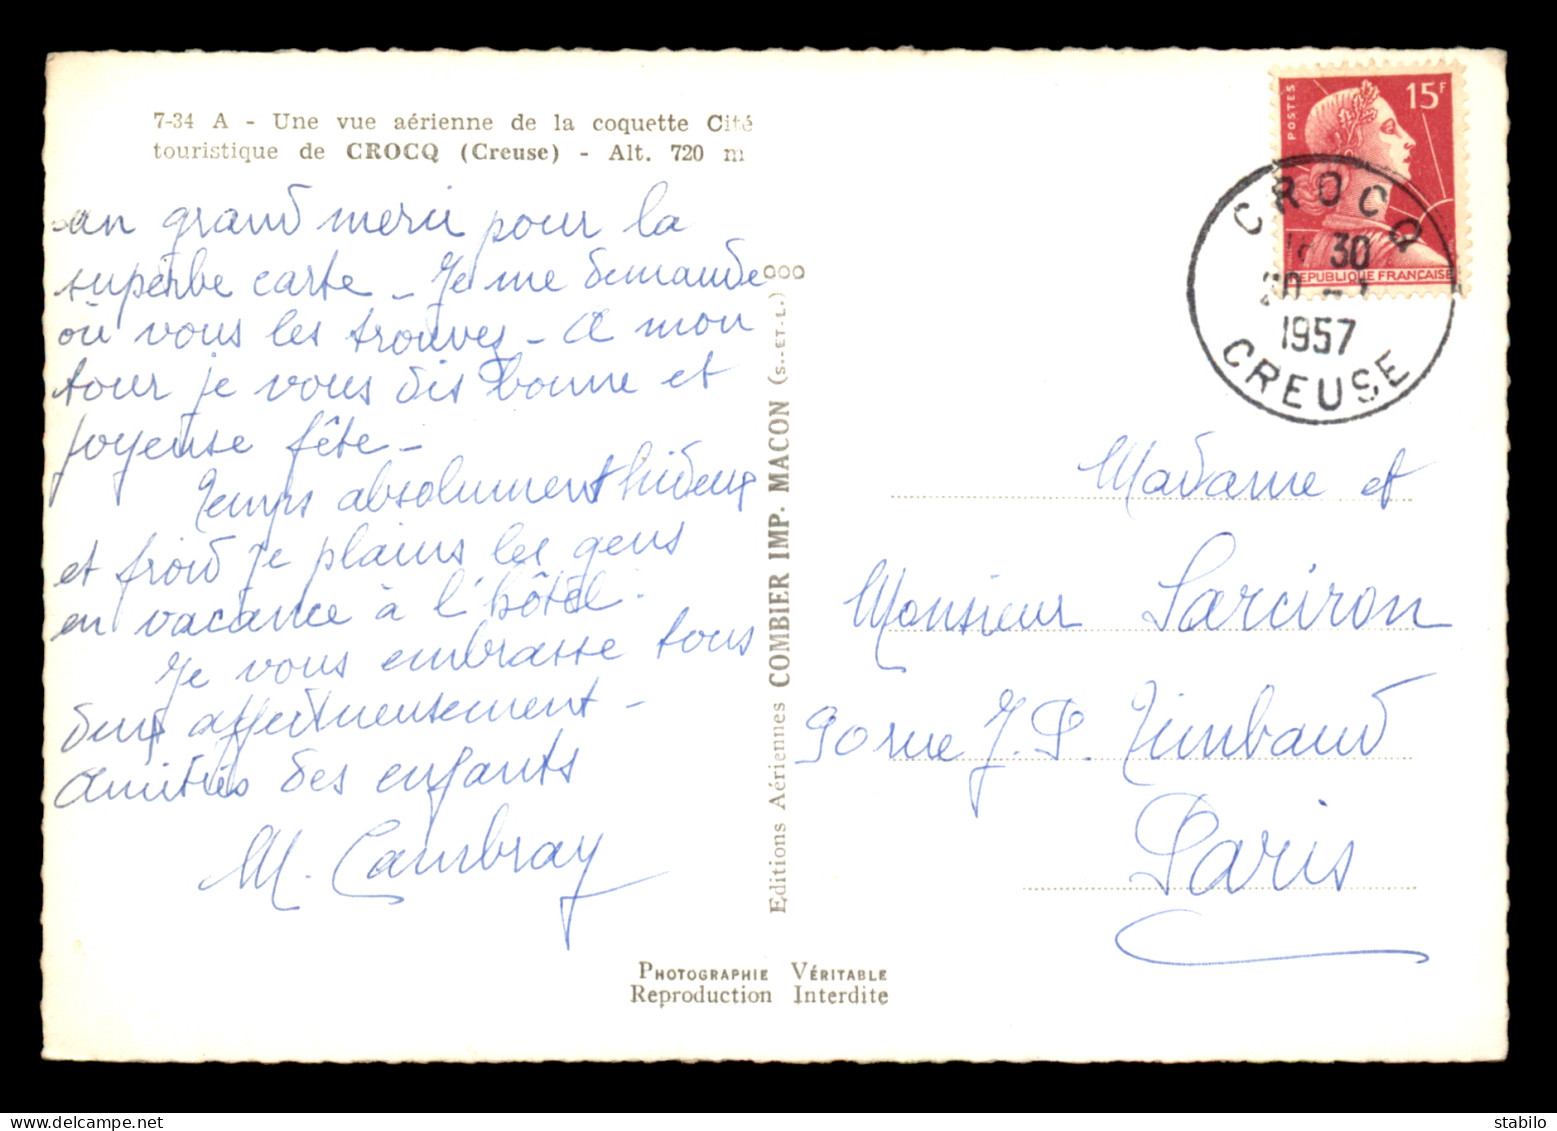 7-34 A - Une vue aérienne de la coquette Cité
touristique de CROCQ (Creuse) - Alt. 720 m
un grand merci pour la
superbe carte - Je me demande
où vous les trouvez - A mon
tour je vous dis bonne et
joyeuse fête -
Temps absolument hideux
et froid je plains les gens
en vacance à l'hôtel.
Je vous embrasse tous
deux affectueusement -
Amitiés des enfants
M. Cambray
Editions Aériennes COMBIER IMP. MACON (S.-ET-L.)
PHOTOGRAPHIE VÉRITABLE
Reproduction Interdite
POSTES
15F
REPUBLIQUE FRANÇAISE
CROCQ
30
1957
CREUSE
Madame et
Monsieur Sarciron
90 rue J. P. Timbaud
Paris
stabilo